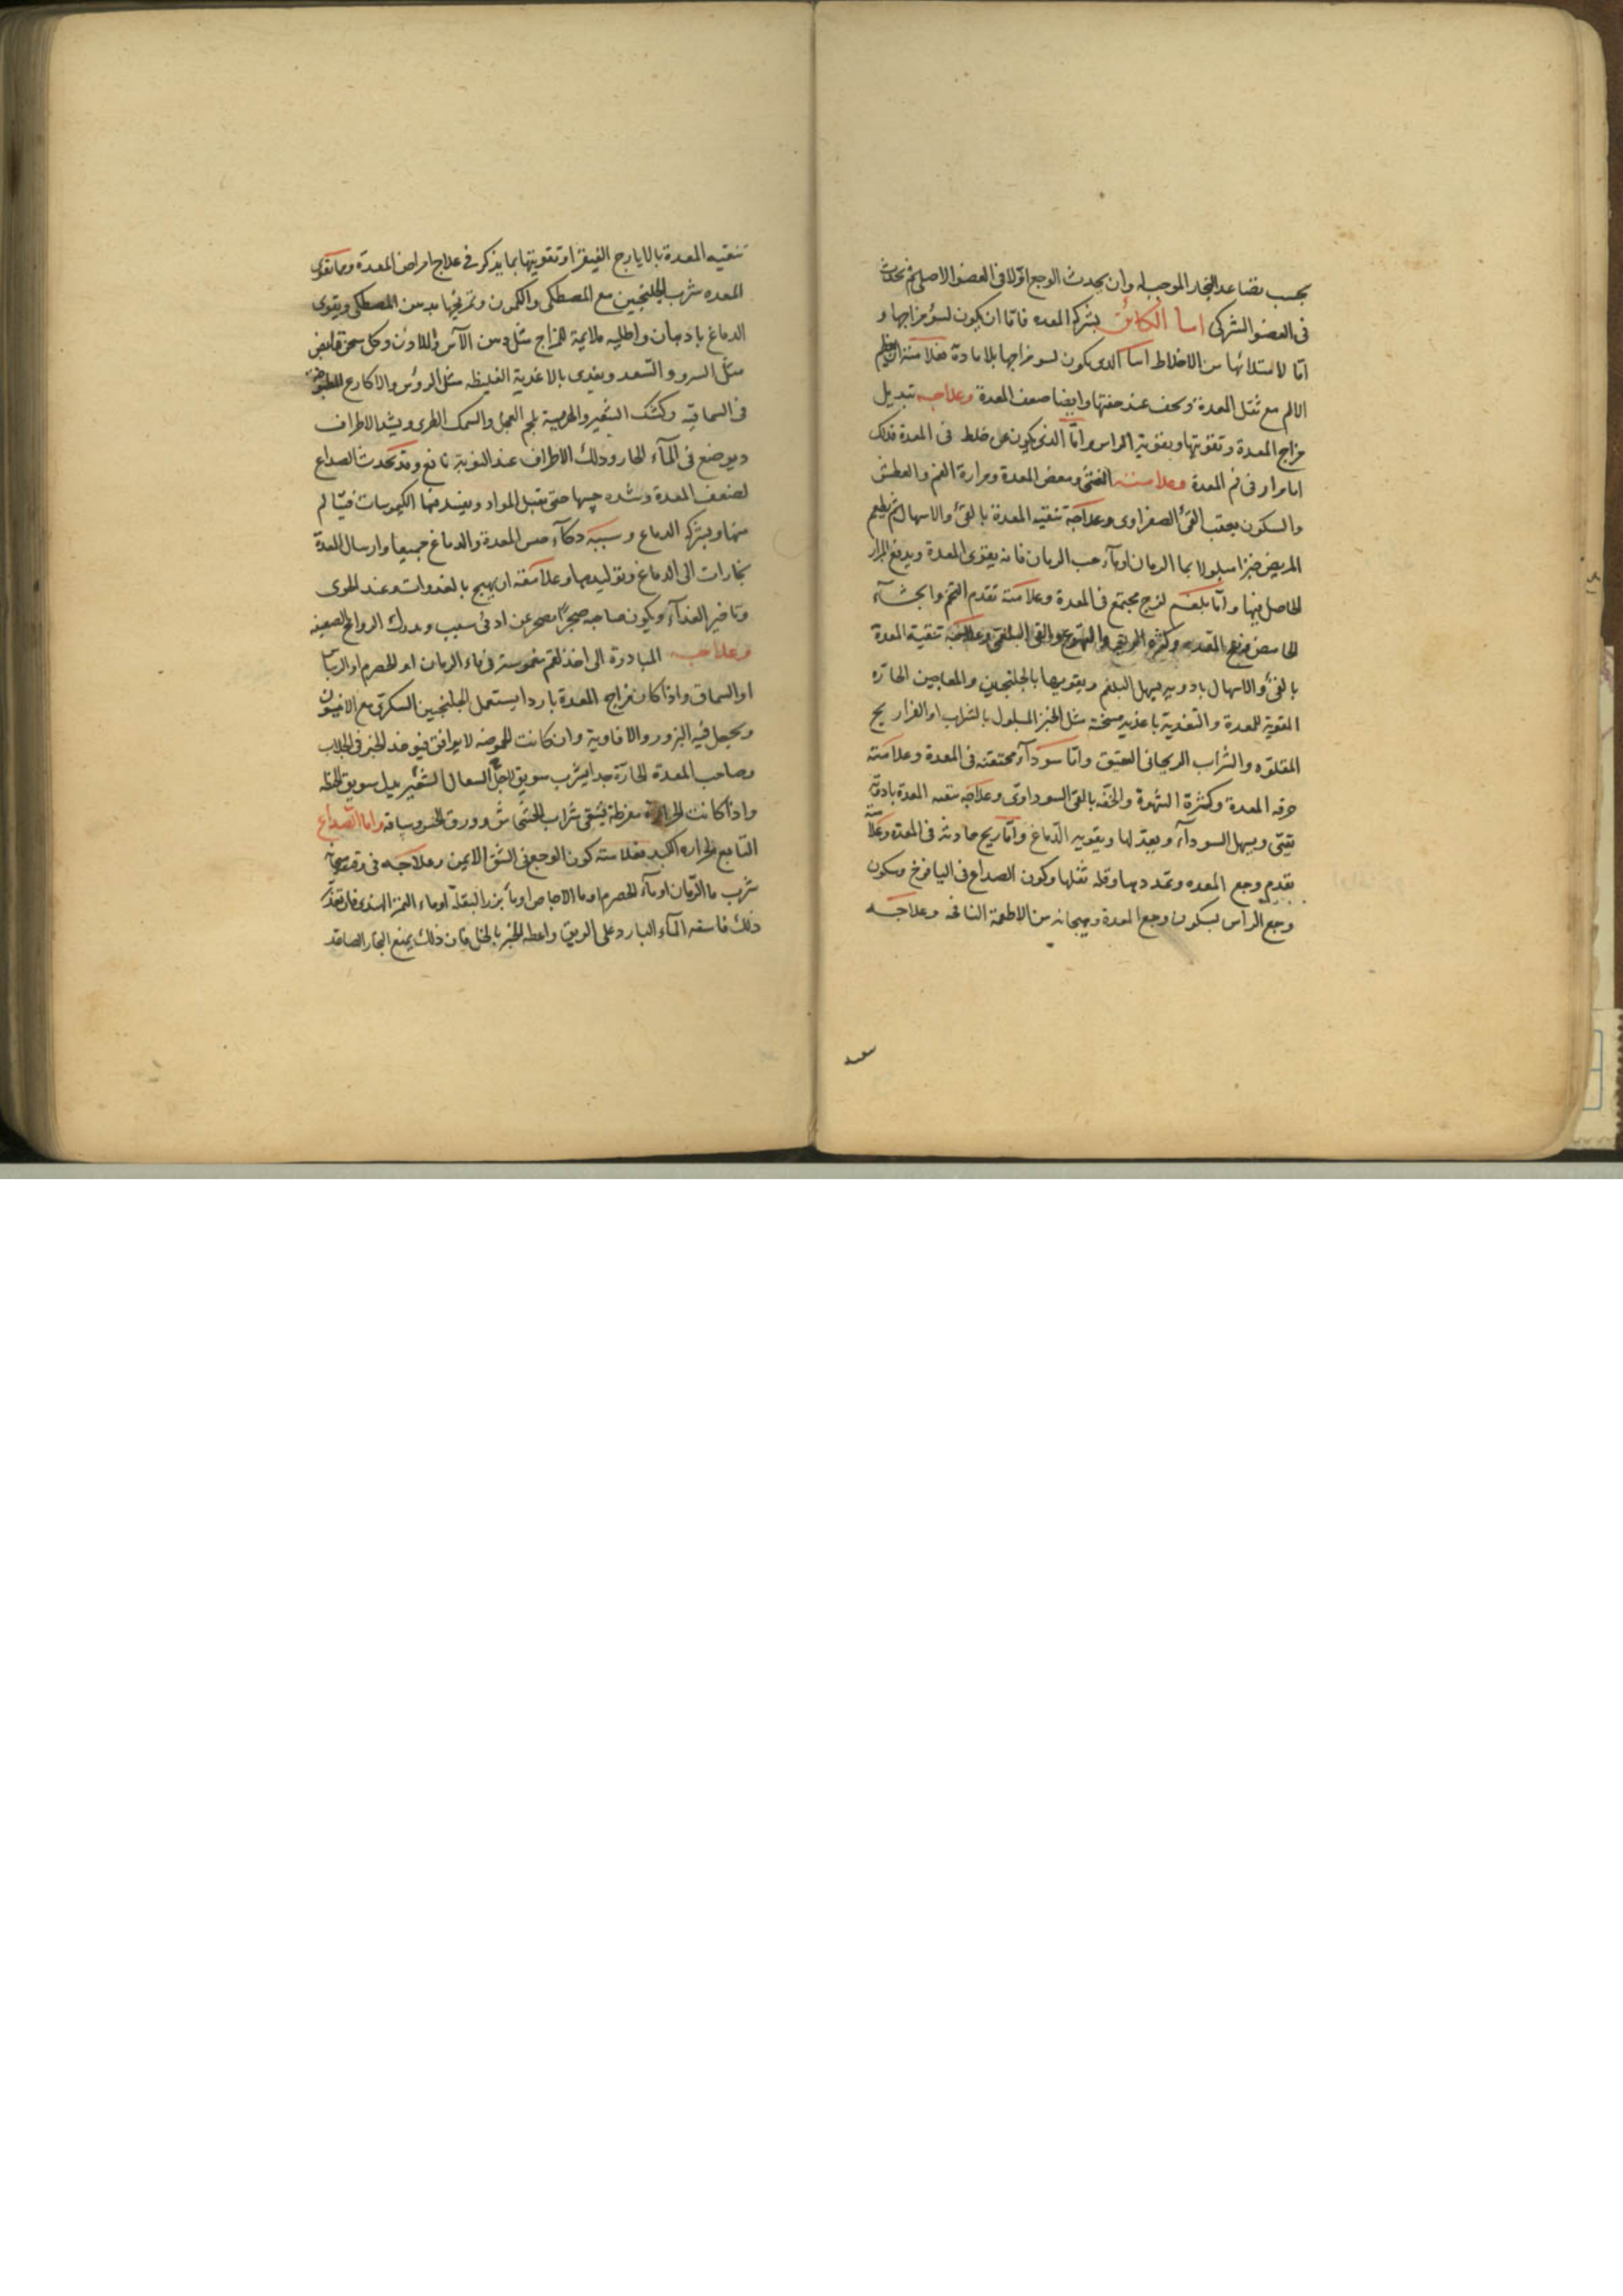 بحسب تصاعد البخار الموجب له وان يحدث الوجع اولا فى العضو الاصلى ثم يحدث
فى العضو الشركى اما الكائن بشركه المعده فاما ان يكون لسوء مزاجها و
اما لامتلائها من الاخلاط اما الذى يكون لسو مزاجها بلا مادة فعلامته
الالم مع ثقل المعدة ويخف عند خفتها وايضا ضعف المعدة وعلاجه تبديل
مزاج المعدة وتقويتها وبتقوية الراس واما الذى يكون عن خلط فى المعدة فذلك
اما مرار فى فم المعدة وعلامته الغثى ومغص المعدة ومرارة الفم والعطش
والسكون بعقب القئ الصفراوى وعلاجه تنقيه المعدة بالقئ والاسهال ثم يطعم
المريض خبزا مبلولا بما الرمان او ماء حب الرمان فانه يقوى المعدة ويدفع المرار
الحاصل فيها واما بلغم لزج مجتمع فى المعدة وعلامته تقدم التخم والجشآء
الحامض ونفخ المعده وكثرة الريق والتهوع والقى البلغمى وعلاجه تنقية المعدة
بالقئ والاسهال بادويه يسهل البلغم ويقويها بالجلنجبين والمعاجين الحاره
المقوية للمعدة والتغدية باغذيه مسخنة مثل الخبز المبلول بالشراب او الفراريج
المقلوه والشراب الريحانى العتيق واما سودآء محتقنه فى المعدة وعلامته
حرقه المعدة وكثرة الشهوة والخفه بالقى السوداوى وعلاجه تنقيه المعدة بادوية
تقيئ ويسهل السودآء ويعدلها وبتقويه الدماغ واما ريح حادثه فى المعدة وعلامته
تقدم وجع المعده وتمددها وقله ثقلها وكون الصداع فى اليافوخ وسكون
وجع الراس بسكون وجع المعدة وهيجانه من الاطعمة النافخه وعلاجه
تنقيه المعدة بالايارج الفيقرا وتقويتها بما يذكر فى علاج امراض المعدة ومما يقوى
المعده شرب الجلنجبين مع المصطكى والكمون وتمريخها بدهن المصطكى ويقوى
الدماغ بادهان واطليه ملايمة للمزاج مثل دهن الآس واللادن وكل سخن قابض
مثل السرو والسعد ويغدى بالاغدية الغليظه مثل الرؤس والاكارع المطبوخة
فى السماقيه وكشك الشعير والهريسة بلحم العجل والسمك الطرى ويشد الاطراف
ويوضع فى المآء الحار ودلك الاطراف عند النوبة نافع وقد يحدث الصداع
لضعف المعدة وشده حسها حتى تقبل المواد ويفسد فيها الكيموسات فيتالم
منها ويشركه الدماغ وسببه دكآء حس المعدة والدماغ جميعا وارسال المعدة
بخارات الى الدماغ وتوليدها وعلامته ان يهيج بالغدوات وعند الخوى
وتاخير الغدآء ويكون صاحبه ضجرا يضجر عن ادنى سبب ويدرك الروائح الضعيفه
وعلاجه المبادرة الى اخذ لقم مغموسة فى ماء الرمان او الحصرم او الريباس
او السماق واذا كان مزاج المعدة باردا يستعمل الجلنجبين السكرى مع الانيسون
ويجعل فيه البزور والافاوية وان كانت الحموضه لا يوافق فيوخذ الخبز فى الجلاب
وصاحب المعدة الحارة جدا يشرب سويق لاجل السعال الشعير بدل سويق الحنطه
واذا كانت الحرارة مفرطة فيسقى شراب الخشخاش وورق الخس وساقه واما الصداع
التابع لحراره الكبد فعلامته كون الوجع فى الشق الايمن وعلاجه فى
شرب ما الرمان او مآء الحصرم او ما الاجاص او مآ بزر البقلة او ماء التمر الهندى فان تعذر
ذلك فاسقه المآء البارد على الريق واعطه الخبز بالخل فان ذلك يمنع البخار الصاعد